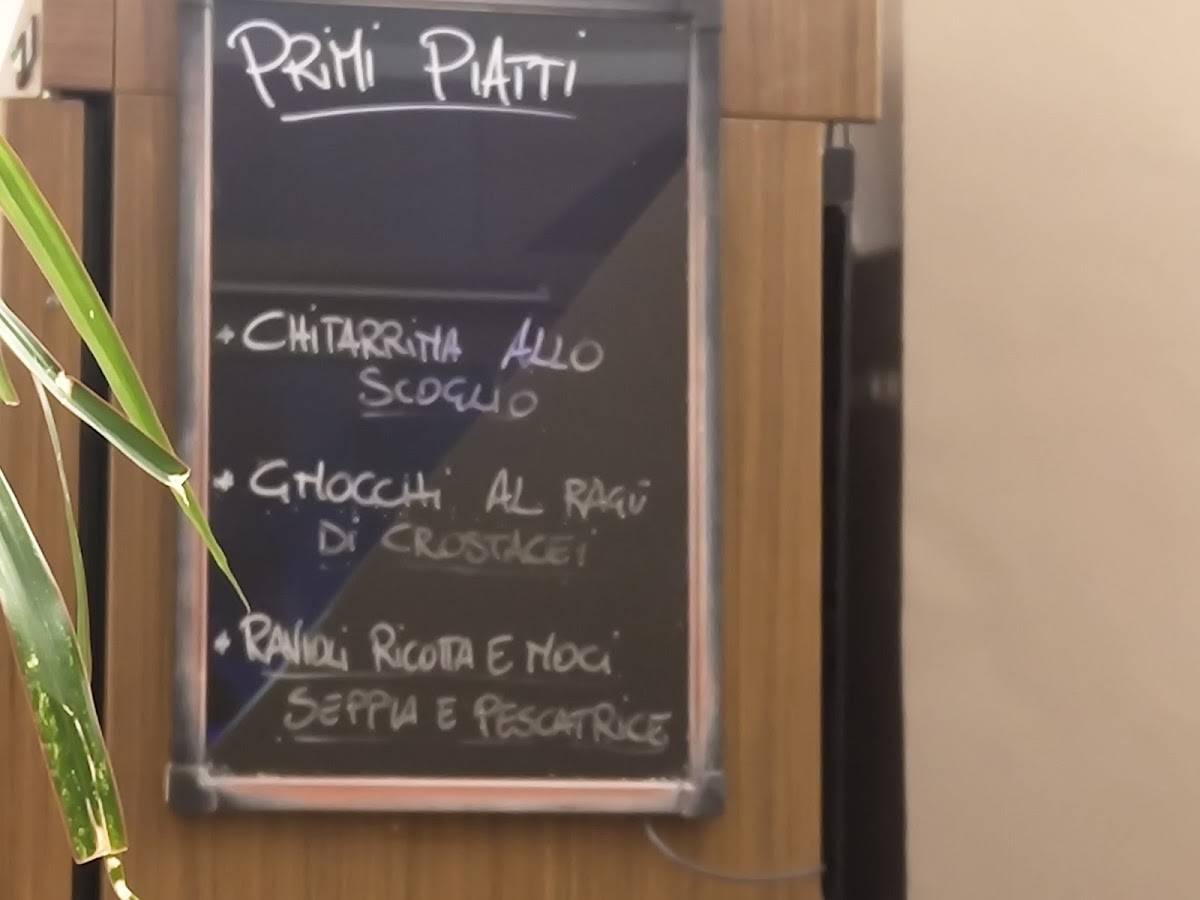 PRIMI PIATTI
+ CHITARRINA ALLO
SCOGLIO
+ GNOCCHI AL RAGÙ
DI CROSTACEI
+ RAVIOLI RICOTTA E NOCI
SEPPIA E PESCATRICE